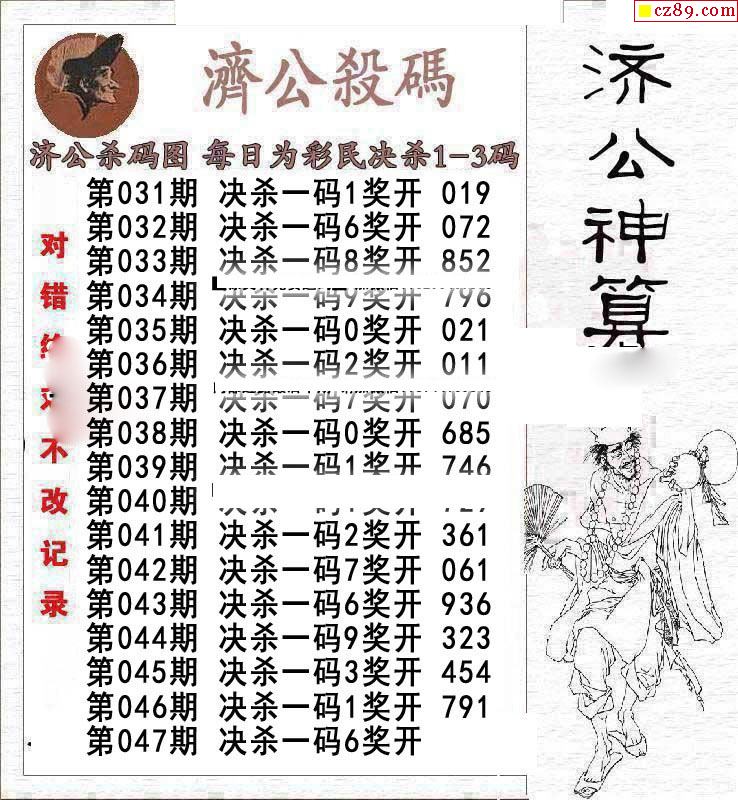 cz89.com
濟公殺碼
济公杀码图 每日为彩民决杀1-3码
第031期 决杀一码1奖开 019
第032期 决杀一码6奖开 072
第033期 决杀一码8奖开 852
第034期 决杀一码9奖开 796
第035期 决杀一码0奖开 021
第036期 决杀一码2奖开 011
第037期 决杀一码7奖开 070
第038期 决杀一码0奖开 685
第039期 决杀一码1奖开 746
第040期
第041期 决杀一码2奖开 361
第042期 决杀一码7奖开 061
第043期 决杀一码6奖开 936
第044期 决杀一码9奖开 323
第045期 决杀一码3奖开 454
第046期 决杀一码1奖开 791
第047期 决杀一码6奖开
对错
不改记录
济公神算